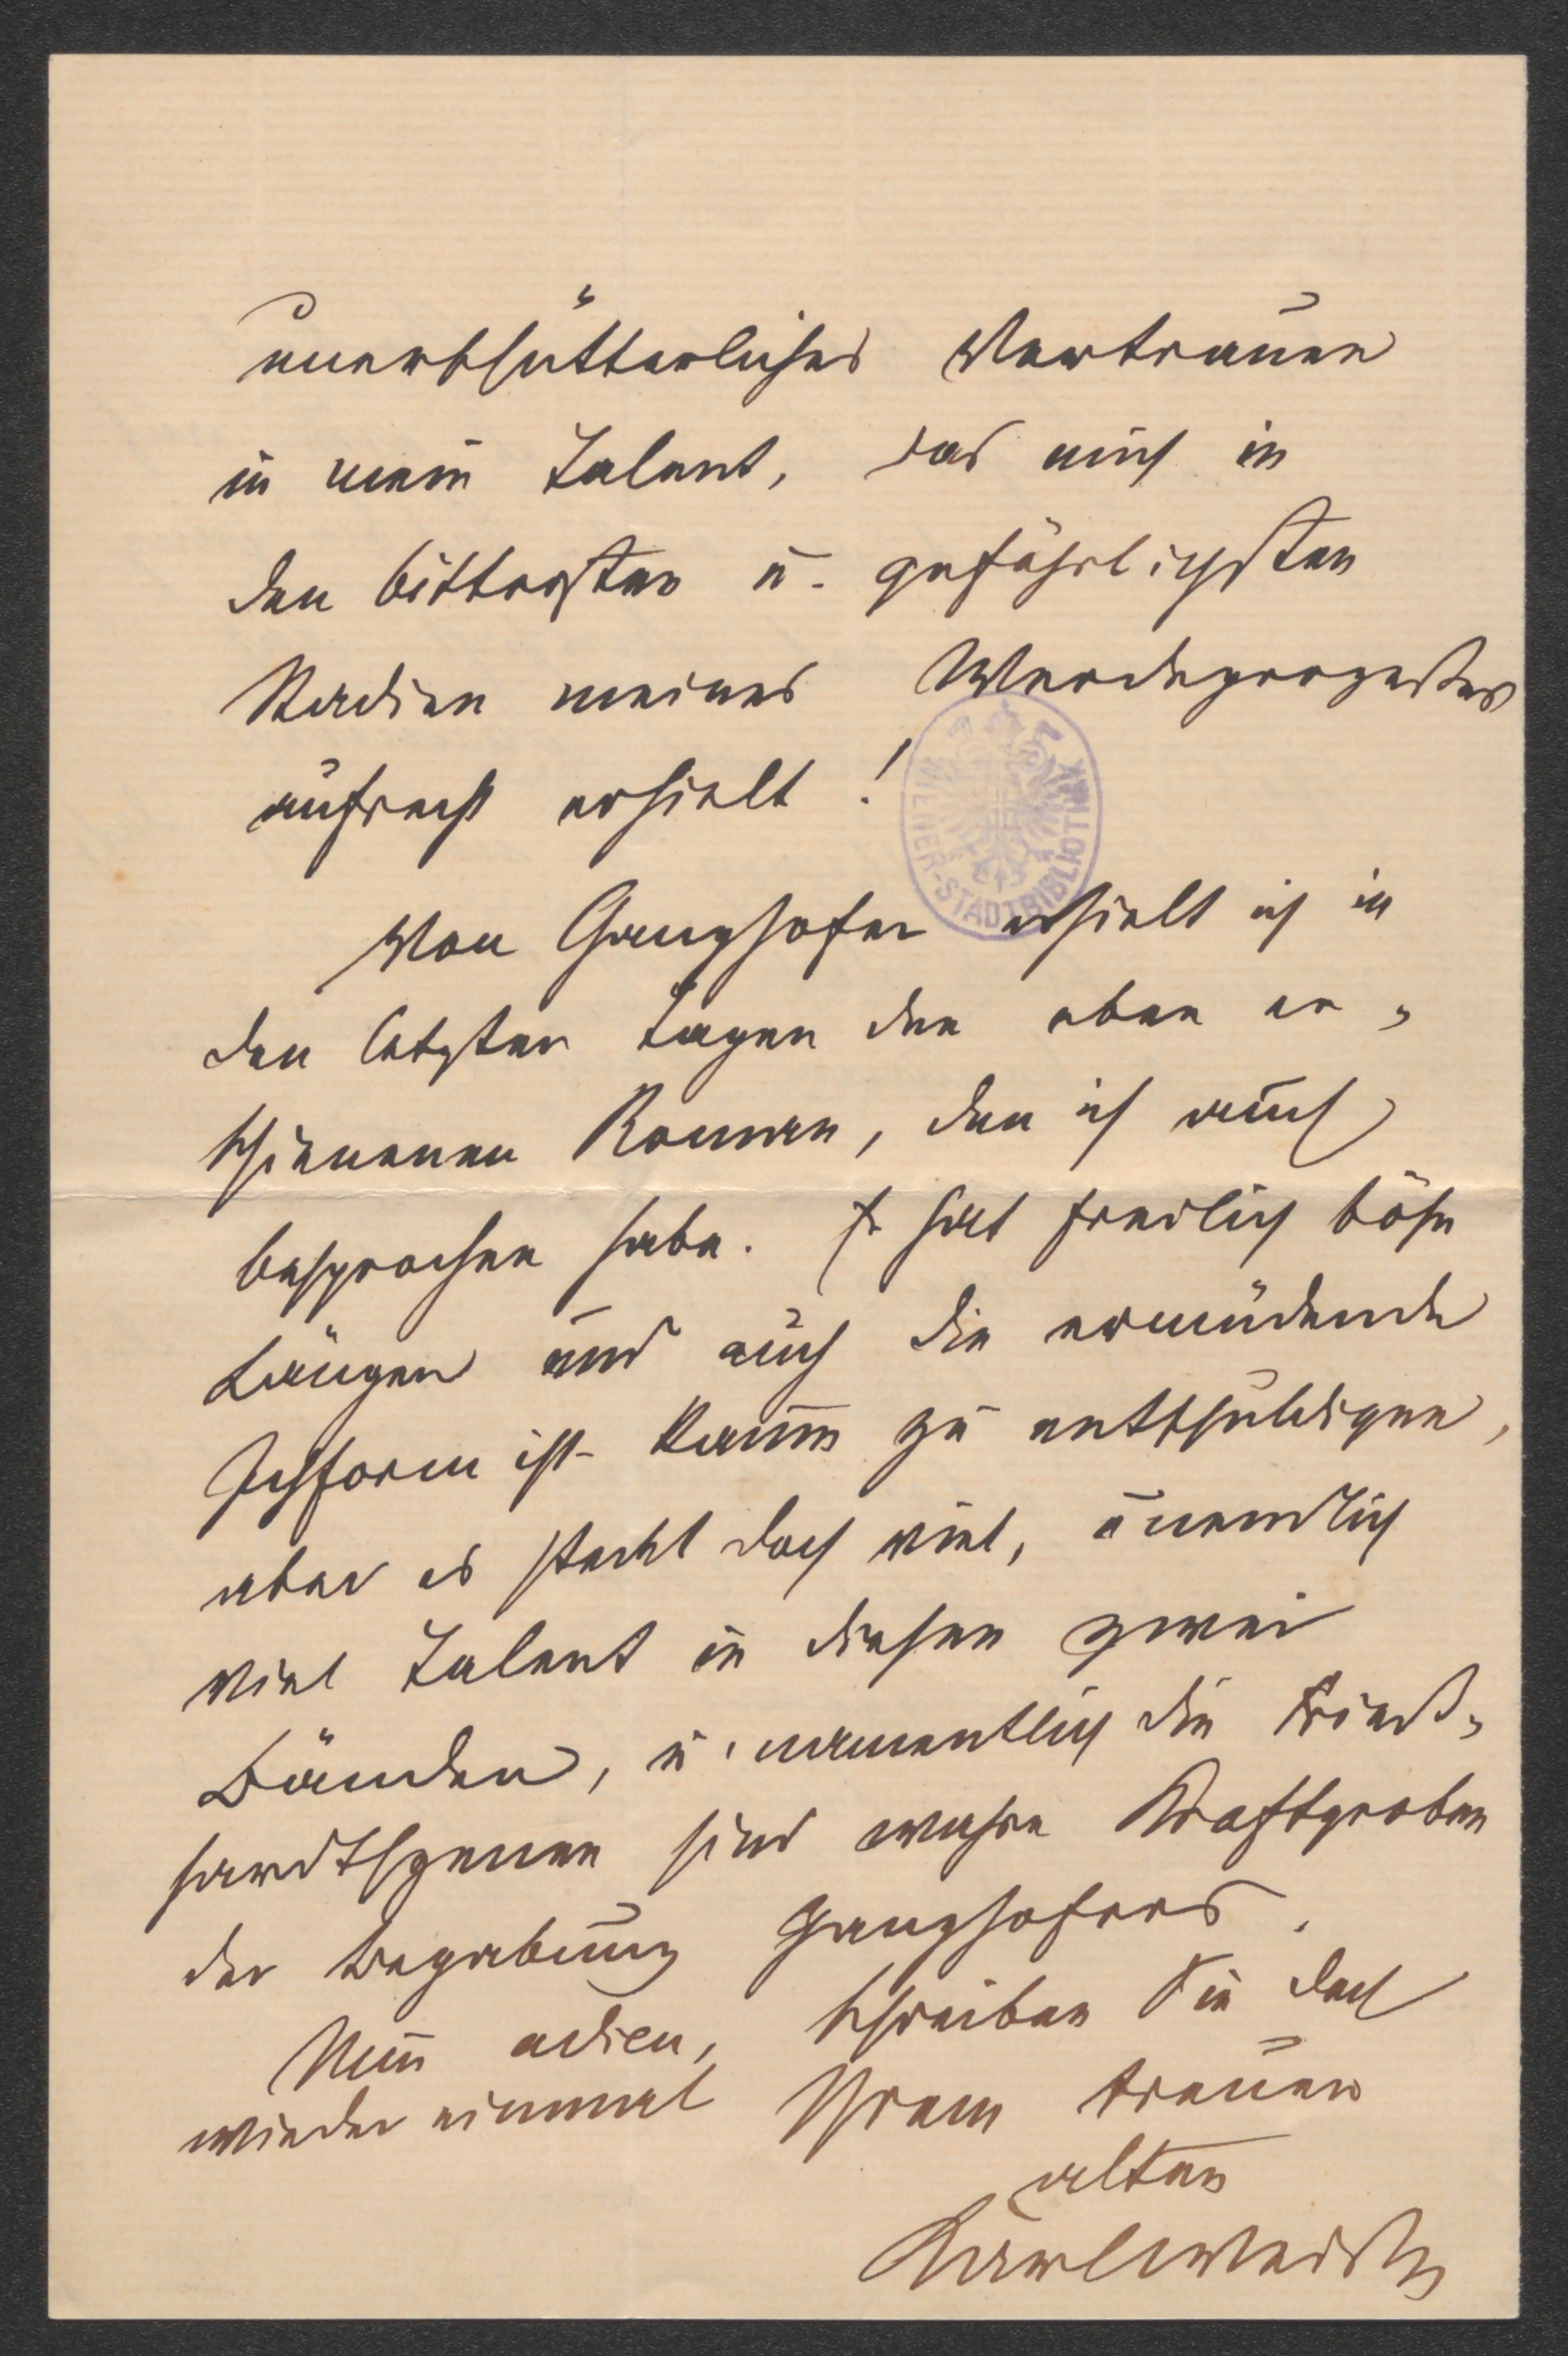 unerschütterliches Vertrauen
in mein Talent, das mich in
den bittersten u. gefährlichsten
Stadien meines Werdeprozesses
aufrecht erhielt!
WIENER-STADTBIBLIOTHEK
Von Ganghofer erhielt ich in
den letzten Tagen den eben er-
schienenen Roman, den ich auch
besprochen habe. Er hat freilich böse
Längen und auch die ermüdende
Ichform ist kaum zu entschuldigen,
aber es steckt doch viel, unendlich
viel Talent in diesen zwei
Bänden, u. namentlich die
sind wahre Kraftproben
der Begabung Ganghofers.
Nun adieu, schreiben Sie doch
wieder einmal Ihrem treuen
alten
Karlweis